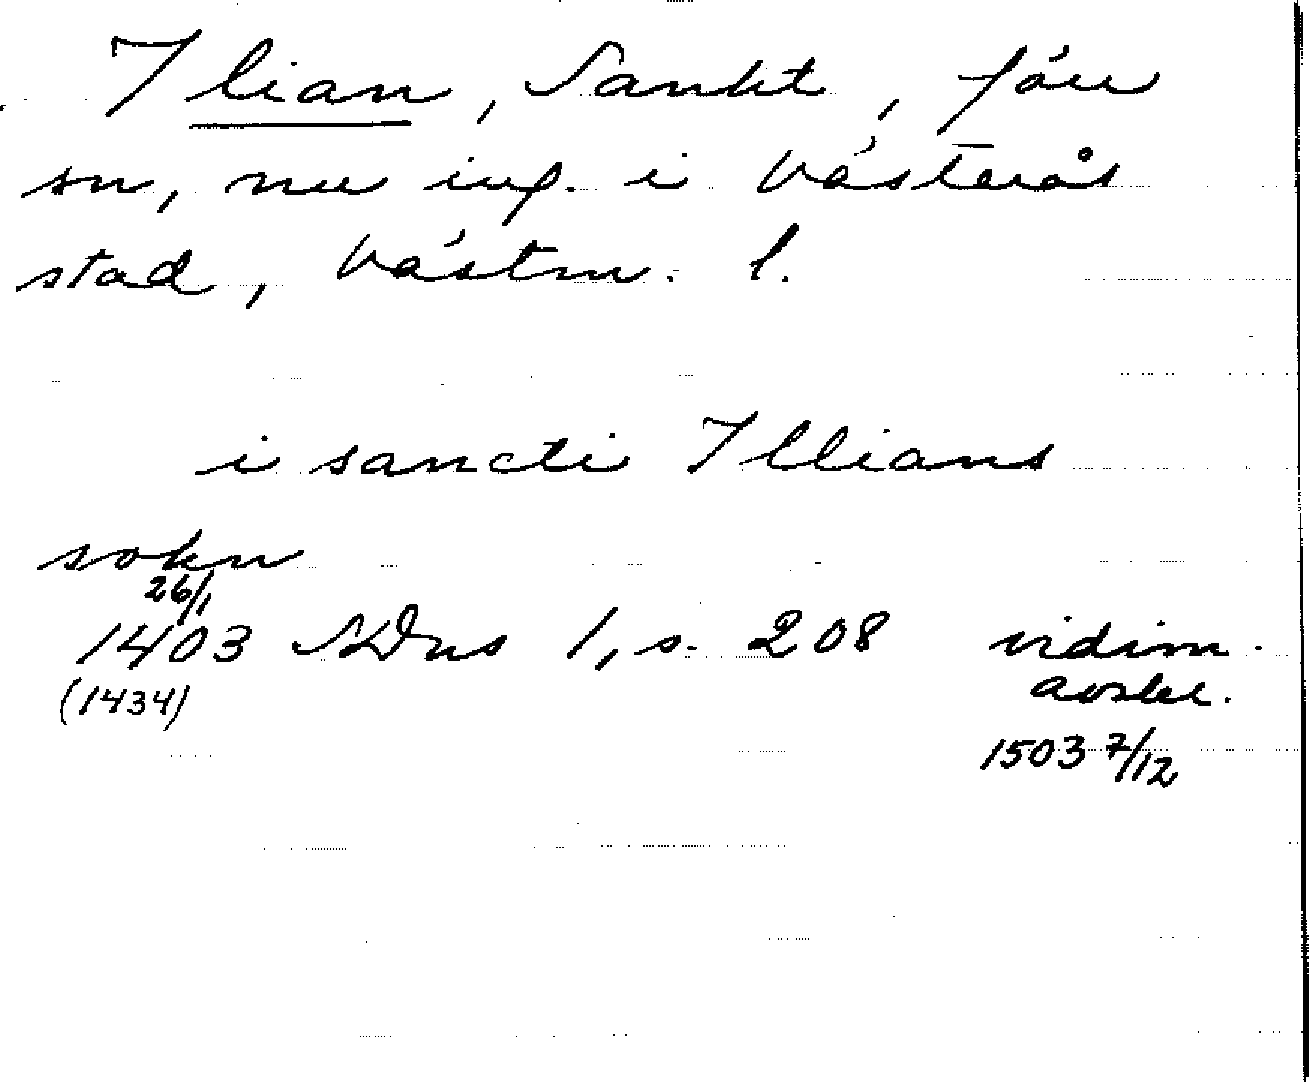 Ilian, Sankt, förr
sn, nu ing. i Västerås
stad, Västm. l.
i sancti Illians
sokn
26/1
1403 SDns 1, s. 208 vidim.
(1434) avskr.
1503 7/12